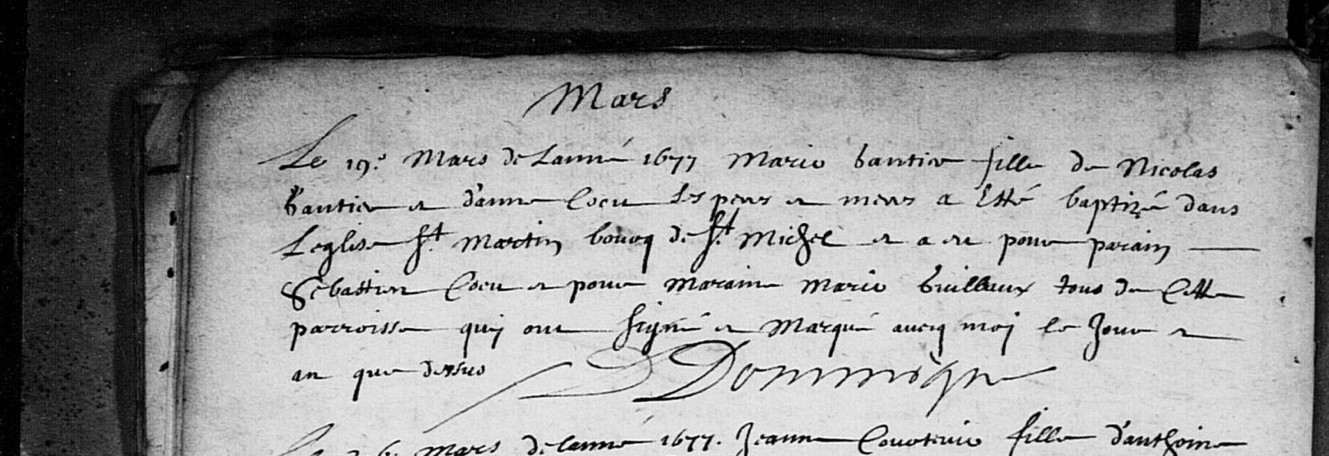 Mars
Le 19e Mars de Lanné 1677 Marie bautier fille de Nicolas
bautier et d'anne Cocu Les pere et mere a Etté baptizé dans
Leglise St. Martin bourq de St. Michel et a eu pour parain
Sebastien Cocu et pour Maraine Marie tous de Cette
parroisse quy ont signé et Marqué avecq moy le Jour et
an que dessus Dominique
Mars de lanné 1677. Jeanne fille d'anthoine